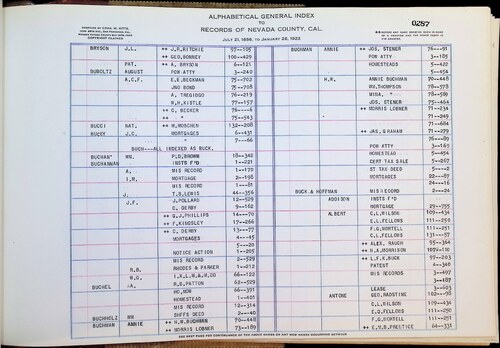 ALPHABETICAL GENERAL INDEX
TO
RECORDS OF NEVADA COUNTY, CAL.
JULY 21, 1856, TO JANUARY 28, 1922
COPYRIGHT CLAIMED
0287
BRYSON J.L. ++ J.R. RITCHIE 97--105
++ GEO. BONNEY 100--429
PAT. ++ A. BRYSON 6--121
BUBOLTZ AUGUST POW ATTY 3--240
A.C.F. E.E. BECKMAN 75--702
JNO BOND 75--708
A. TREGIDGO 76--219
W.H. KISTLE 77--157
++ C. BECKER 76--6
++ " 75--543
BUCCI NAT. ++ W. MUSCHEN 132--208
BUCEY J.C. MORTGAGES 6--431
" 7--66
BUCH---ALL INDEXED AS BUCK.
BUCHAN" WM. P.D. BROWN 18--342
BUCHANNAN INSTS F'D 1--221
A. MIS RECORD 1--170
I.R. MORTGAGE 2--198
MIS RECORD 1--81
J. T.S. LEWIS 44--356
J.F. J. POLLARD 12--529
C. DERBY 9--162
++ G.J. PHILLIPS 14--70
++ F. KINGSLEY 17--266
++ C. DERBY 13--77
MORTGAGES 4--45
5--20
NOTICE ACTION 1--205
MIS RECORD 2--529
R.B. RHODES & PARKER 1--212
W.G. I.X.L.M.& M.CO 66--122
BUCHEL R.G. PATTON 62--529
HOMESTEAD 1--401
MIS RECORD 12--314
BUCHHOLZ WM SUFFS DEED 2--40
BUCHMAN ANNIE ++ H.M. BUCHMAN 70--448
++ MORRIS LOBNER 73--189
BUCHMAN ANNIE ++ JOS. STENER 76--91
POW ATTY 3--185
HOMESTEADS 5--422
5--454
H.M. ANNIE BUCHMAN 70--448
WM. THOMPSON 78--578
MINA, " 78--509
JOS. STENER 75--464
++ MORRIS LOBNER 71--234
71--249
71--684
++ JAS. GRAHAM 71--279
76--89
POW ATTY 3--165
HOMESTEAD 5--454
CERT TAX SALE 5--267
ST TAX DEED 5--2
MORTGAGES 22--87
24--16
BUCK & HOFFMAN MIS RECORD 2--24
ADDISON INSTS F'D
MORTGAGE 29--755
ALBERT C.L. WILSON 109--434
C.L. FELLONS 111--250
F.G. NORTELL 111--251
C.L. FELLONS 131--57
++ ALEX. RAUCH 95--364
++ H.A. MORRISON 107--110
++ L.F.K. BUCK 97--203
PATENT 4--348
MIS RECORDS 3--497
3--487
LEASE 3--603
ANTONE GEO. RADSTINE 102--78
C.L. WILSON 109--434
C.L. FELLONS 111--250
F.G. NORTELL 111--251
++ E.W.B. PRENTICE 64--331